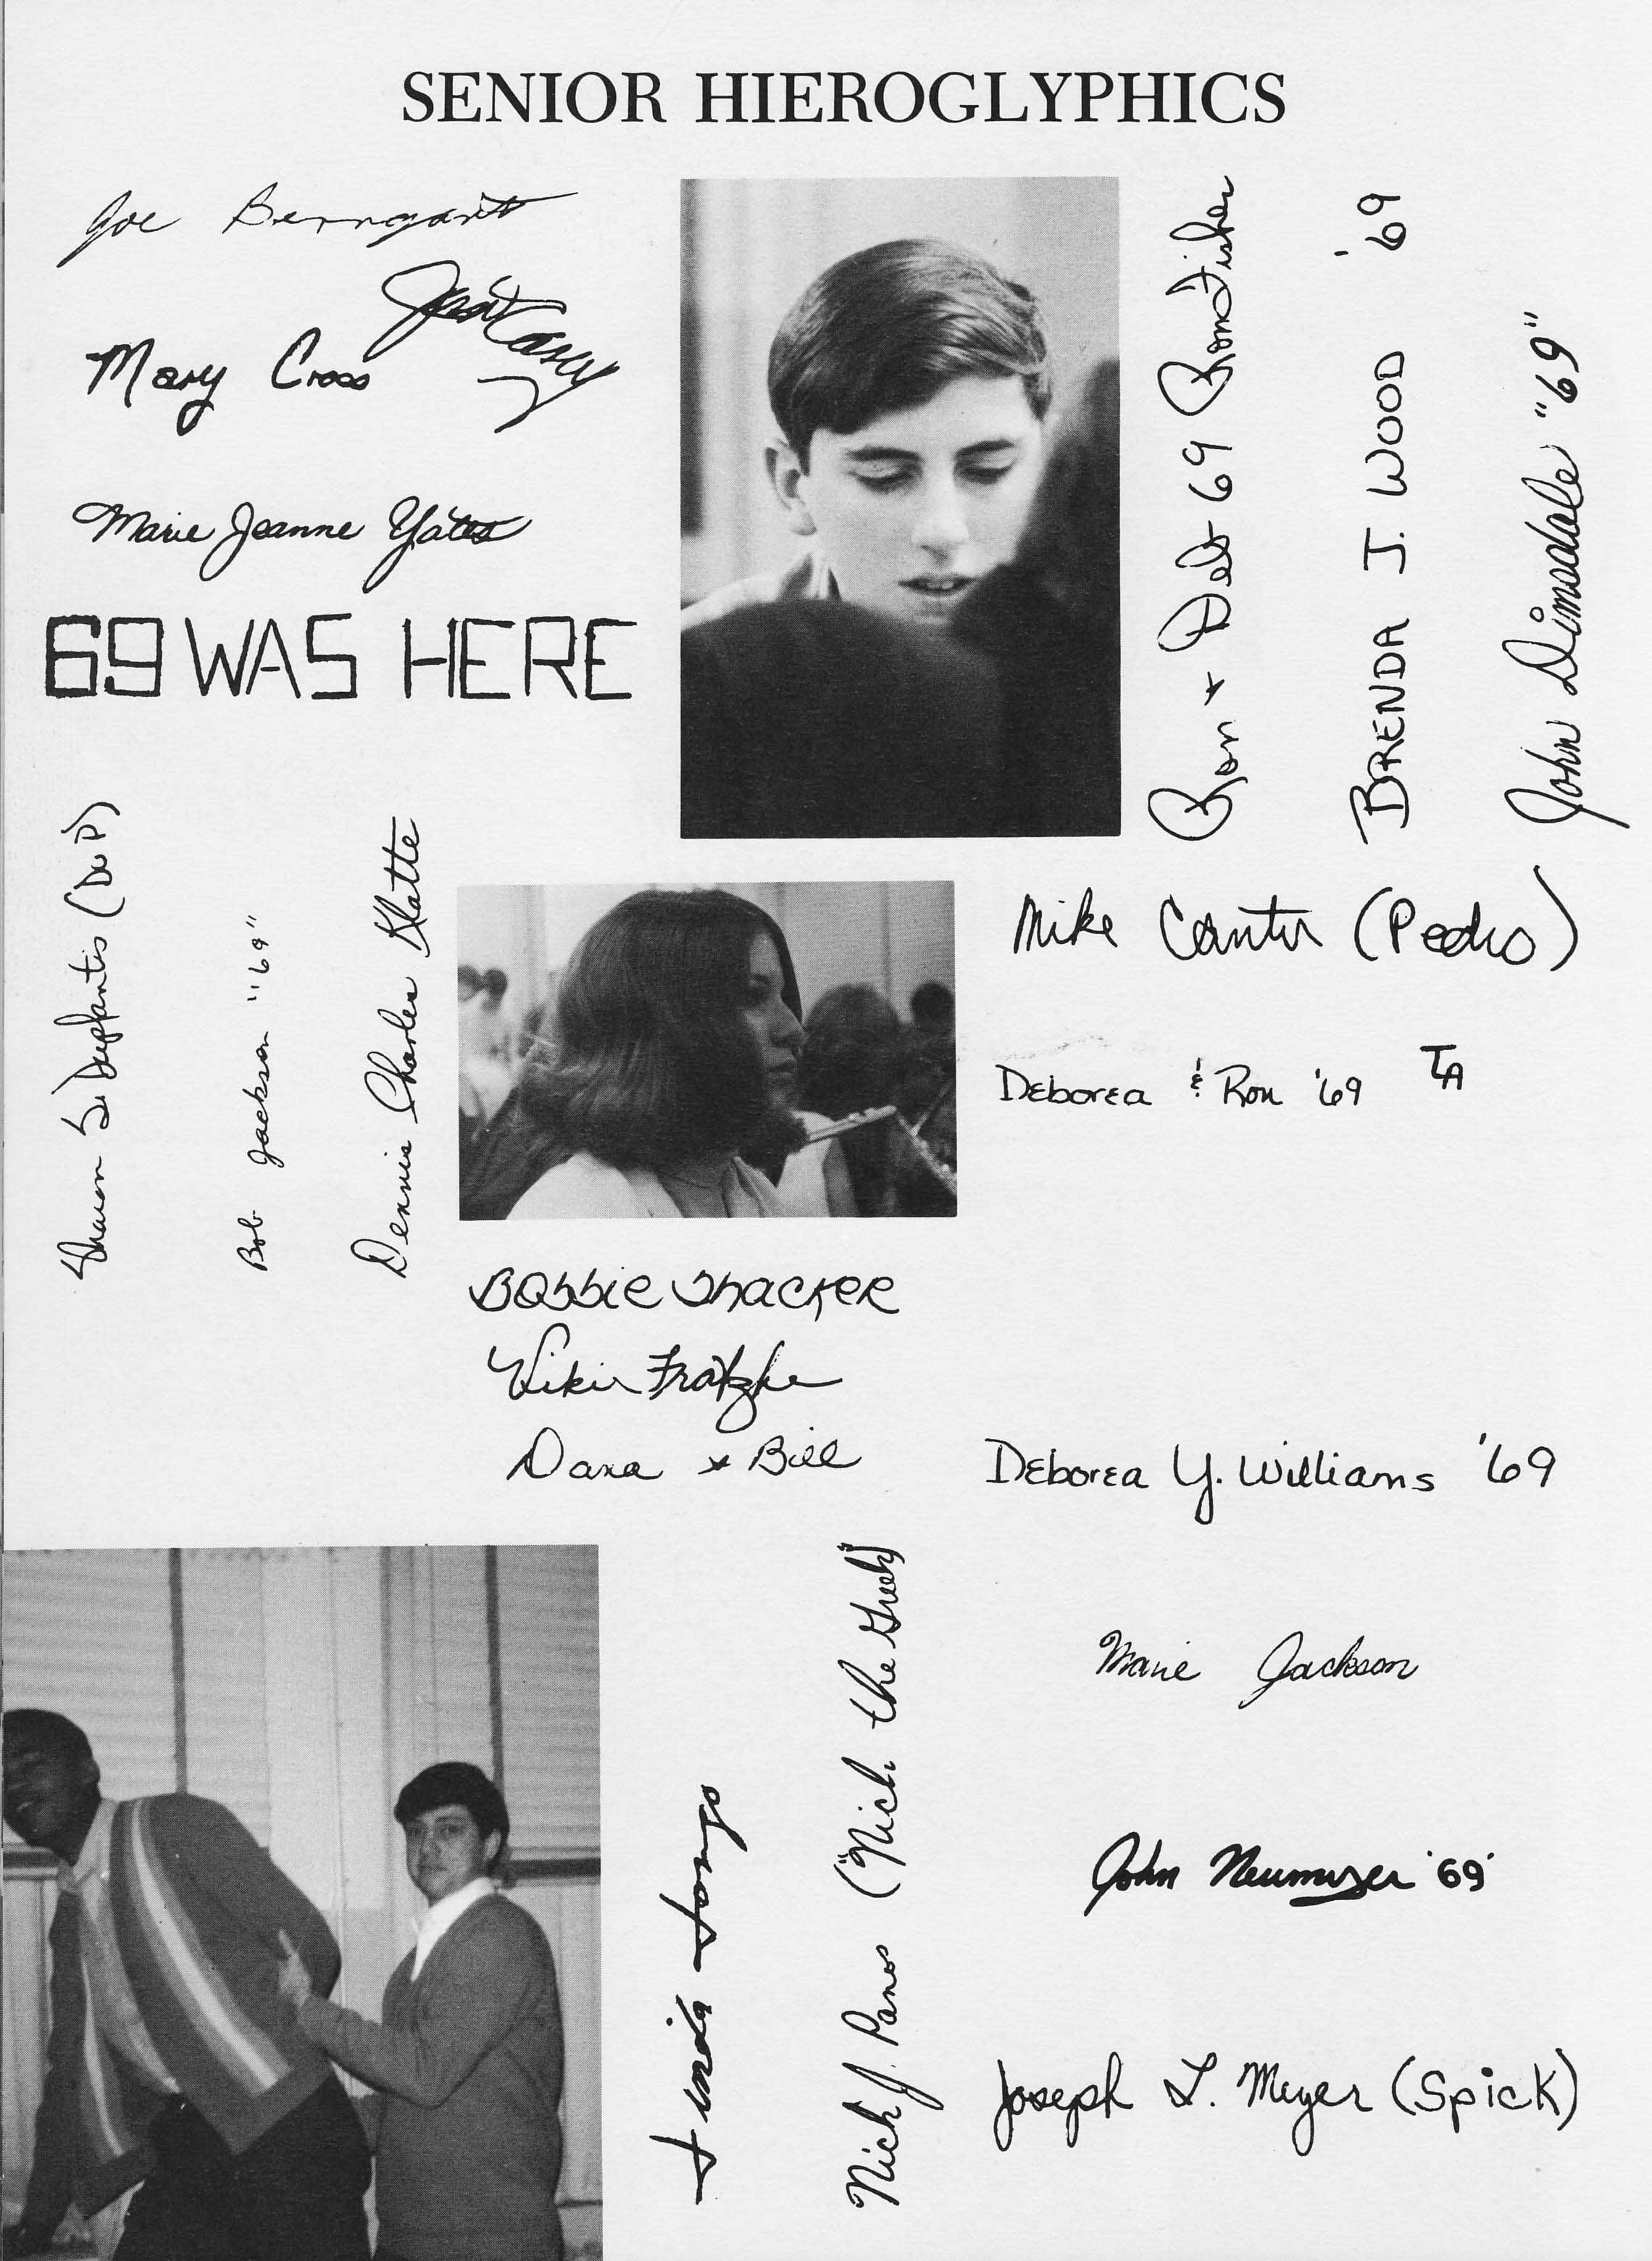 SENIOR HIEROGLYPHICS
Joe
Mary Cross
Casey
Marie Jeanne Yates
69 WAS HERE
Ron + Deb 69 Ron Fisher
BRENDA J. WOOD '69
John Dimsdale "69"
Sharon S. Duplantis (Dup)
Bob Jackson "69"
Dennis Charles Klatte
Mike Canter (Pedro)
Deborea & Ron '69 TA
Bobbie Thacker
Vikie Fratzke
Dana + Bill
Deborea Y. Williams '69
Linda Longo
Nick J. Panos ("Nick the Greek")
Marie Jackson
John '69'
Joseph L. Meyer (Spick)